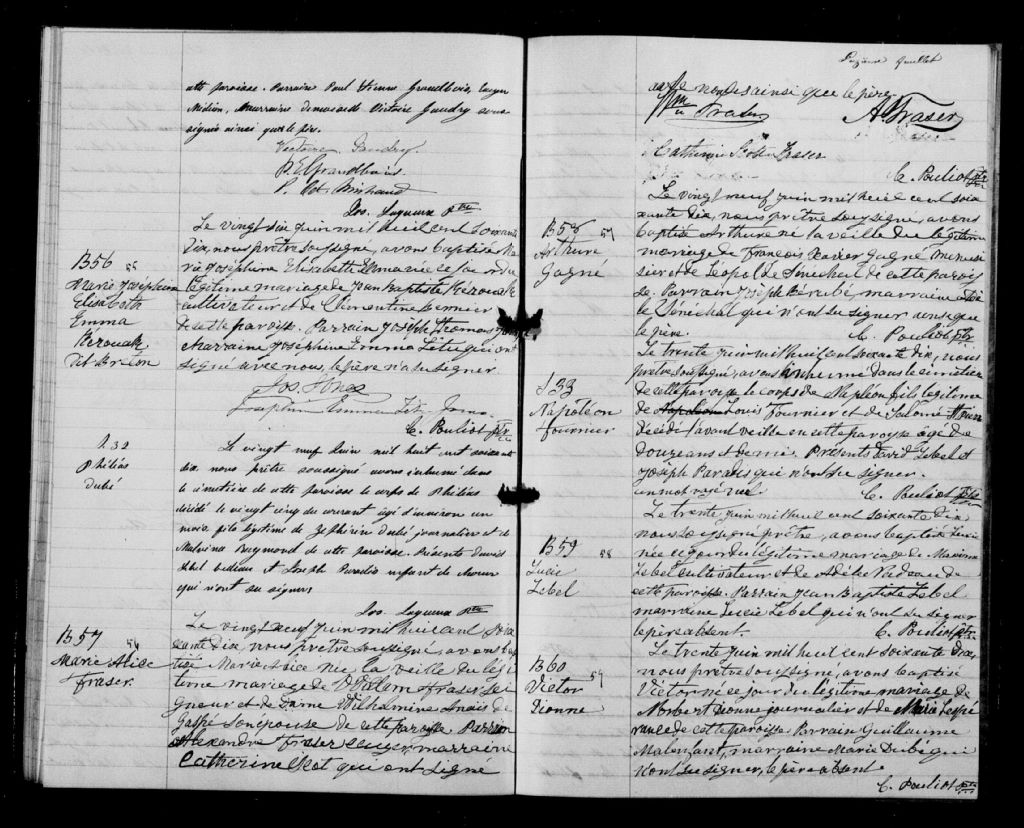 cette paroisse. Parrain Paul Etienne Grandbois, Ecuyer
Médecin, Marraine demoiselle Victoire Gaudry sous-
signés ainsi que le père.
Victoire Gaudry
P. E. Grandbois
P. Bte Michaud
Jos. Lagueux Ptre
B56
Marie Joséphine
Elisabeth
Emma
Kerouak
dit Breton
55
Le vingt six juin mil huit cent soixante
dix, nous prêtre soussigné, avons baptisé Ma
rie Joséphine Elisabeth Emma née ce jour du
légitime mariage de Jean Baptiste Kérouak
cultivateur et de Clémentine
de cette paroisse. Parrain Joseph Thomas Jones
Marraine Joséphine Emma Têtu qui ont
signé avec nous, le père n'a su signer
Jos. Jones
Josephine Emma Têtu Jones
C. Pouliot ptr
S. 32
Philias
Dubé
Le vingt neuf Juin mil huit cent soixante
dix nous prêtre soussigné avons inhumé dans
le cimetière de cette paroisse le corps de Philias
décédé le vingt cinq du courant âgé d'environ un
mois fils légitime de Zéphirin Dubé journalier et de
Malvina Raymond de cette paroisse. Présents David
Lebel bedeau et Joseph Paradis enfant de chœur
qui n'ont su signer
Jos. Lagueux Ptre
B57
56
Marie Alice
Fraser
Le vingt neuf juin mil huit cent soix
ante dix, nous prêtre soussigné, avons bap
tisé Marie Alice née la veille du légi
time mariage de William Fraser Sei
gneur et de Dame Wilhelmine Anaïs de
Gaspé son épouse de cette paroisse Parrain
Alexandre Fraser Ecuyer, marraine
Catherine Scot qui ont signé
juillet
avec nous ainsi que le père
Wm Fraser
A Fraser
Catherine Scott Fraser
C. Pouliot ptr
B58
57
Arthure
Gagné
Le vingt neuf juin mil huit cent soix
ante dix, nous prêtre soussigné, avons
baptisé Arthure né la veille du légitime
mariage de François Xavier Gagné menui
sier et de Léopolde Sénéchal de cette parois
se. Parrain Joseph Bérubé, marraine
le Sénéchal qui n'ont su signer ainsi que
le père.
C. Pouliot ptr
S 33
Napoléon
Fournier
Le trente juin mil huit cent soixante dix, nous
prêtre soussigné, avons inhumé dans le cimetière
de cette paroisse le corps de Napoléon fils légitime
de Napoléon Louis Fournier et de
décédé l'avant veille en cette paroisse âgé de
douze ans et demi. Présents David Lebel et
Joseph Paradis qui n'ont su signer.
un mot rayé nul
C. Pouliot ptr
B59
58
Lucie
Lebel
Le trente juin mil huit cent soixante dix
nous soussigné prêtre, avons baptisé Lucie
née ce jour du légitime mariage de Maxime
Lebel cultivateur et de Adèle Nadeau de
cette paroisse. Parrain Jean Baptiste Lebel
marraine Lucie Lebel qui n'ont su signer
le père absent.
C. Pouliot ptr.
B60
59
Victor
Dionne
Le trente juin mil huit cent soixante dix,
nous prêtre soussigné, avons baptisé
Victor né ce jour du légitime mariage de
Norbert Dionne journalier et de Marie Lespé
rance de cette paroisse Parrain Guillaume
Malenfant, marraine Marie Dubé qui
n'ont su signer, le père absent
C. Pouliot ptr